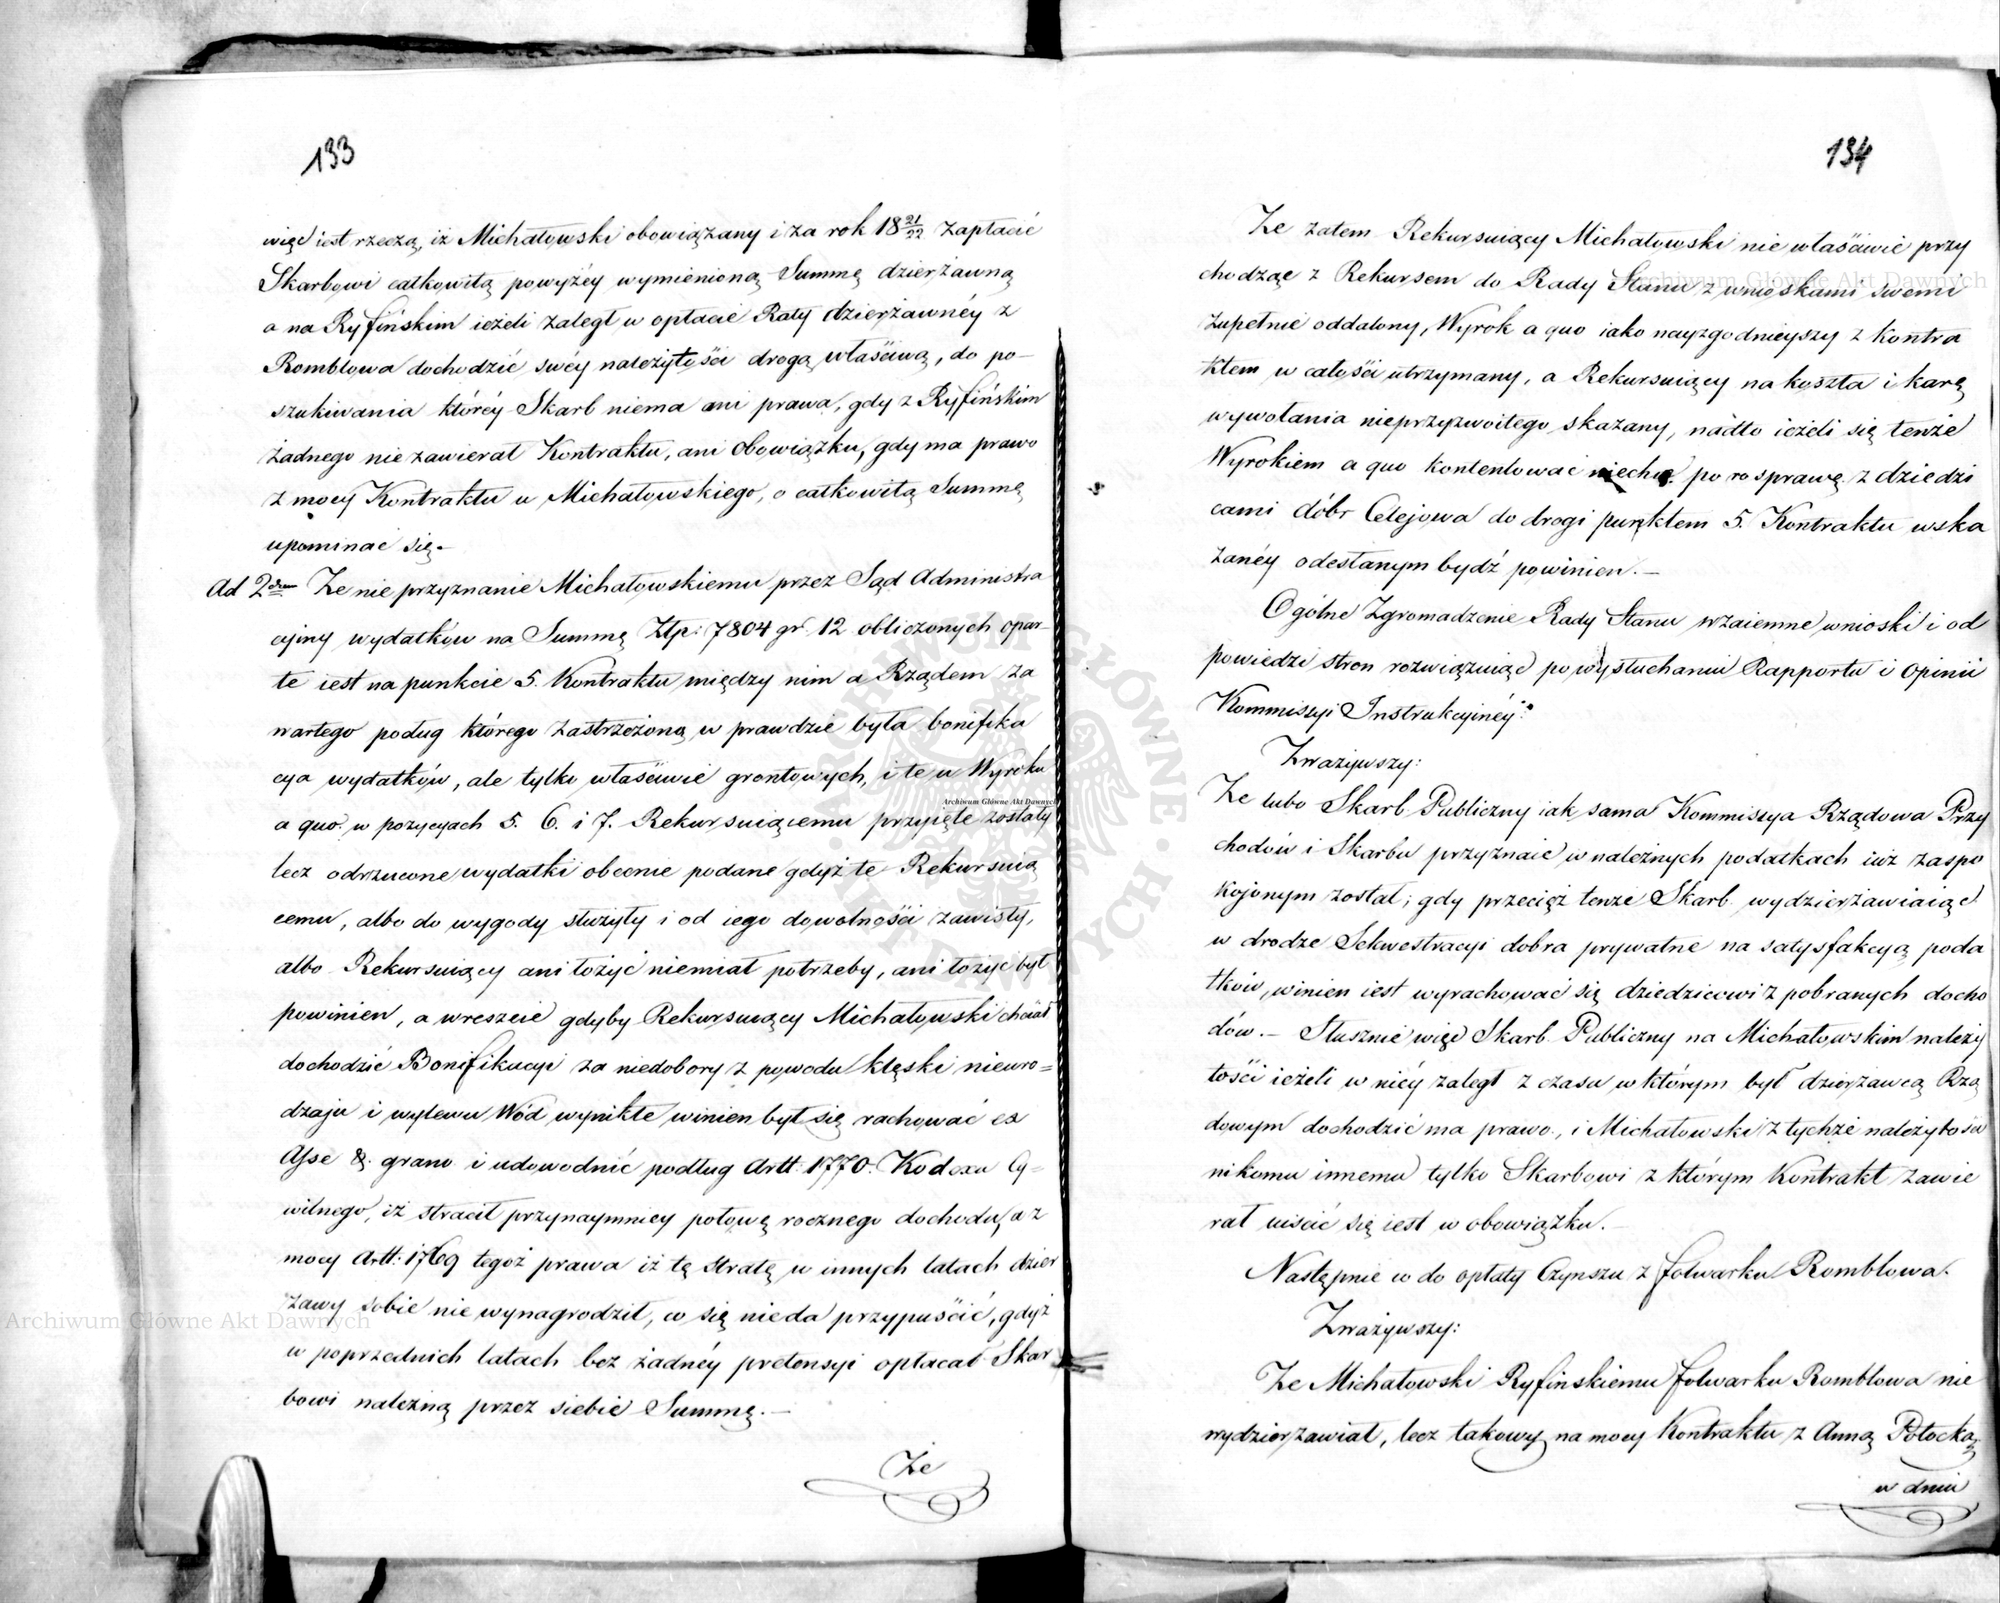 133
więc iest rzeczą, iż Michałowski obowiązany i za rok 18 21/22 zapłacić
Skarbowi całkowitą powyżéy wymienioną Summę dzierżawną
a na Ryfińskim ieżeli zaległ w opłacie Raty dzierżawnéy z
Rombłowa dochodzić swéy należytości drogą właściwą, do po-
szukiwania któréy Skarb niema ani prawa, gdy z Ryfińskim
żadnego nie zawierał Kontraktu, ani obowiązku, gdy ma prawo
z mocy Kontraktu u Michałowskiego, o całkowitą Summę
upominać się.-
Ad 2dum Że nie przyznanie Michałowskiemu przez Sąd Administra
cyiny wydatków na Summę Złp: 7804 gr. 12 obliczonych opar-
te iest na punkcie 5. Kontraktu między nim a Rządem za
wartego podug którego zastrzeżoną w prawdzie była bonifika
cya wydatków, ale tylko właściwie grontowych, i te w Wyroku
a quo. w pozycyach 5. 6. i 7. Rekursuiącemu przyięte zostały
lecz odrzucone wydatki obecnie podane gdyż te Rekursuią
cemu, albo do wygody służyły i od iego dowolności zawisły,
albo Rekursuiący ani łożyć niemiał potrzeby, ani łożyć był
powinien, a wreszcie gdyby Rekursuiący Michałowski chciał
dochodzić Bonifikacyi za niedobory z powodu klęski nieuro=
dzaju i wylewu Wód wynikłe winien był się rachować ex
Asse & grano i udowodnić podług Artt: 1770. Kodexu Cy=
wilnego, iż stracił przynaymniey połowę rocznego dochodu, a z
mocy Artt: 1769 tegoż prawa iż tę stratę w innych latach dzier
żawy sobie nie wynagrodził, co się nieda przypuścić, gdyż
w poprzednich latach bez żadnéy pretensyi opłacał Skar
bowi należną przez siebie Summę.-
Że
134
Że zatem Rekursuiący Michałowski nie właściwie przy
chodząc z Rekursem do Rady Stanu z wnioskami swemi
zupełnie oddalony, Wyrok a quo iako nayzgodnieyszy z kontra
ktem w całości utrzymany, a Rekursuiący na koszta i karę
wywołania nieprzyzwoitego skazany, nadto ieżeli się tenże
Wyrokiem a quo kontentować niechce po rosprawę z dziedzi
cami dóbr Celejowa do drogi punktem 5. Kontraktu wska
zanéy odesłanym bydź powinien.-
Ogólne Zgromadzenie Rady Stanu wzaiemne wnioski i od
powiedzi stron rozwiązuiąc po wysłuchaniu Rapportu i Opinii
Kommissyi Instrukcyinéy:
Zważywszy:
Że lubo Skarb Publiczny iak sama Kommissya Rządowa Przy
chodów i Skarbu przyznaie w należnych podatkach iuż zaspo
kojonym został; gdy przecież tenże Skarb wydzierżawiaiąc
w drodze Sekwestracyi dobra prywatne na satysfakcyą poda
tków, winien iest wyrachować się dziedzicowi z pobranych docho
dów.- Słusznie więc Skarb Publiczny na Michałowskim należy
tości ieżeli w niéy zaległ z czasu w którym był dzierżawcą Rzą
dowym dochodzić ma prawo, i Michałowski z tychże należytości
nikomu innemu tylko Skarbowi z którym Kontrakt zawie
rał uiścić się iest w obowiązku.-
Następnie co do opłaty Czynszu z folwarku Rombłowa.
Zważywszy:
Że Michałowski Ryfińskiemu folwarku Rombłowa nie
wydzierżawiał, lecz takowy na mocy Kontraktu z Anną Potocką
w dniu
Archiwum Główne Akt Dawnych
Archiwum Główne Akt Dawnych
Archiwum Główne Akt Dawnych
ARCHIWUM GŁÓWNE · AKT DAWNYCH ·